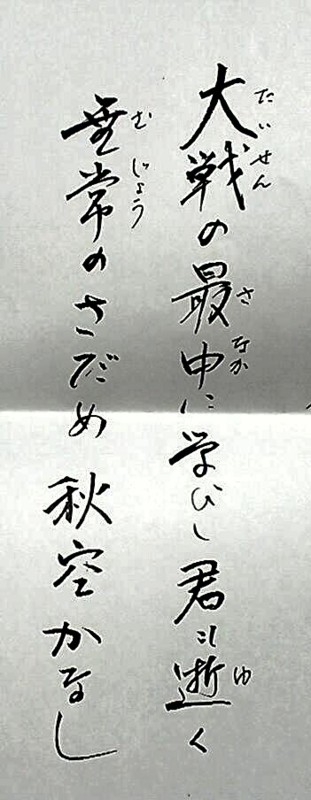 大戦の最中に学びし君も逝く
たいせん さなか ゆ
無常のさだめ 秋空かなし
むじょう